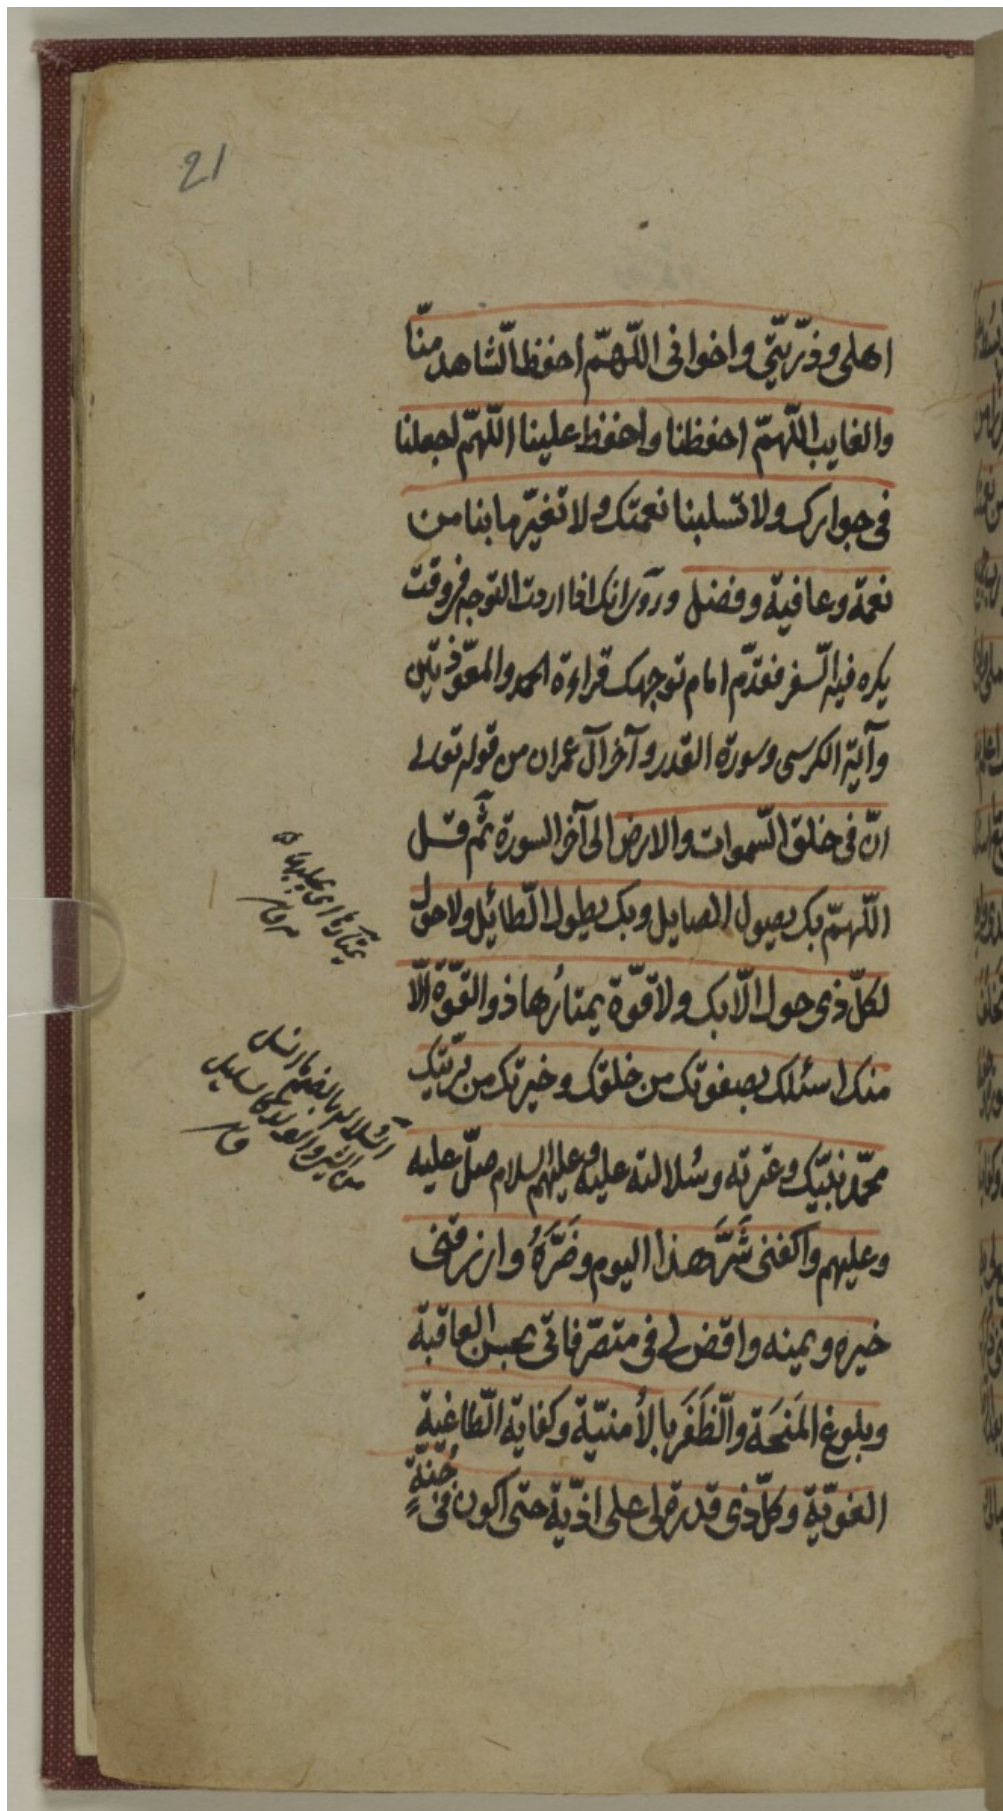 21
اهلى وذرّيّتي واخوانى اللّهمّ احفظ الشّاهد منّا
والغايب اللّهمّ احفظنا واحفظ علينا اللّهمّ اجعلنا
فى جوارك ولا تسلبنا نعمتك ولا تغيّر ما بنا من
نعمة وعافية وفضل وروى انك اذا اردت التوجه فى وقت
يكره فيه السّفر فقدّم امام توجهك قراءة الحمد والمعوّذتين
وآية الكرسى وسورة القدر وآخر آل عمران من قوله تعالى
انّ فى خلق السّموات والارض الى آخر السورة ثمّ قل
اللّهمّ بك يصول الصايل وبك يطول الطّائل ولا حول
لكلّ ذى حول الّا بك ولا قوّة يمتارُها ذو القوّة الّا
منك اسئلك بصفوتك من خلقك وخيرتك من بريّتك
محمّد نبيّك وعترته وسُلالته عليه وعليهم السلام صلّ عليه
وعليهم واكفنى شَرَّ هذا اليوم وضَرَّهُ وارزقنى
خيره ويمنه واقض لى فى متصرّفاتى بحسن العاقبة
وبلوغ المَنحَة والظَفَر بالأمنيّة وكفاية الطّاغية
الغويّة وكلّ ذى قدرة لى على اذيّة حتى اكون فى جُنّةٍ
يمتارها اى يجلبها
السّلالة بالضم ما انسل
من الشئ والولد كالسليل